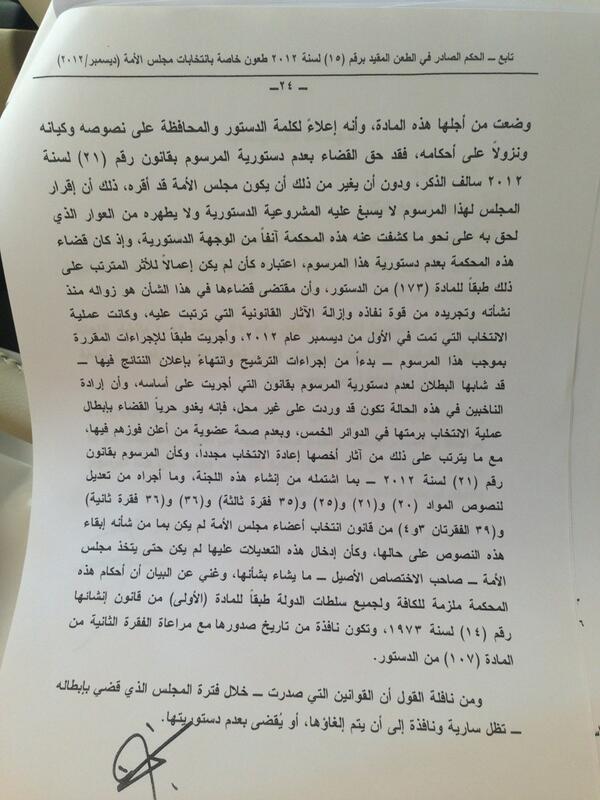 تابع ــ الحكم الصادر في الطعن المقيد برقم (١٥) لسنة ٢٠١٢ طعون خاصة بانتخابات مجلس الأمة (ديسمبر/٢٠١٢)
ــ ٢٤ــ
وضعت من أجلها هذه المادة، وأنه إعلاءً لكلمة الدستور والمحافظة على نصوصه وكيانه
ونزولاً على أحكامه، فقد حق القضاء بعدم دستورية المرسوم بقانون رقم (٢١) لسنة
٢٠١٢ سالف الذكر، ودون أن يغير من ذلك أن يكون مجلس الأمة قد أقره، ذلك أن إقرار
المجلس لهذا المرسوم لا يسبغ عليه المشروعية الدستورية ولا يطهره من العوار الذي
لحق به على نحو ما كشفت عنه هذه المحكمة آنفاً من الوجهة الدستورية، وإذ كان قضاء
هذه المحكمة بعدم دستورية هذا المرسوم، اعتباره كأن لم يكن إعمالاً للأثر المترتب على
ذلك طبقاً للمادة (١٧٣) من الدستور، وأن مقتضى قضاءها في هذا الشأن هو زواله منذ
نشأته وتجريده من قوة نفاذه وإزالة الآثار القانونية التي ترتبت عليه، وكانت عملية
الانتخاب التي تمت في الأول من ديسمبر عام ٢٠١٢، وأجريت طبقاً للإجراءات المقررة
بموجب هذا المرسوم ــ بدءاً من إجراءات الترشيح وانتهاءً بإعلان النتائج فيها ــ
قد شابها البطلان لعدم دستورية المرسوم بقانون التي أجريت على أساسه، وأن إرادة
الناخبين في هذه الحالة تكون قد وردت على غير محل، فإنه يغدو حرياً القضاء بإبطال
عملية الانتخاب برمتها في الدوائر الخمس، وبعدم صحة عضوية من أعلن فوزهم فيها،
مع ما يترتب على ذلك من آثار أخصها إعادة الانتخاب مجدداً، وكأن المرسوم بقانون
رقم (٢١) لسنة ٢٠١٢ ــ بما اشتمله من إنشاء هذه اللجنة، وما أجراه من تعديل
لنصوص المواد (٢٠) و(٢١) و(٢٥) و(٣٥ فقرة ثالثة) و(٣٦) و(٣٦ فقرة ثانية)
و(٣٩ الفقرتان ٣و٤) من قانون انتخاب أعضاء مجلس الأمة لم يكن بما من شأنه إبقاء
هذه النصوص على حالها، وكأن إدخال هذه التعديلات عليها لم يكن حتى يتخذ مجلس
الأمة ــ صاحب الاختصاص الأصيل ــ ما يشاء بشأنها، وغني عن البيان أن أحكام هذه
المحكمة ملزمة للكافة ولجميع سلطات الدولة طبقاً للمادة (الأولى) من قانون إنشائها
رقم (١٤) لسنة ١٩٧٣، وتكون نافذة من تاريخ صدورها مع مراعاة الفقرة الثانية من
المادة (١٠٧) من الدستور.
ومن نافلة القول أن القوانين التي صدرت ــ خلال فترة المجلس الذي قضي بإبطاله
ــ تظل سارية ونافذة إلى أن يتم إلغاؤها، أو يُقضى بعدم دستوريتها.